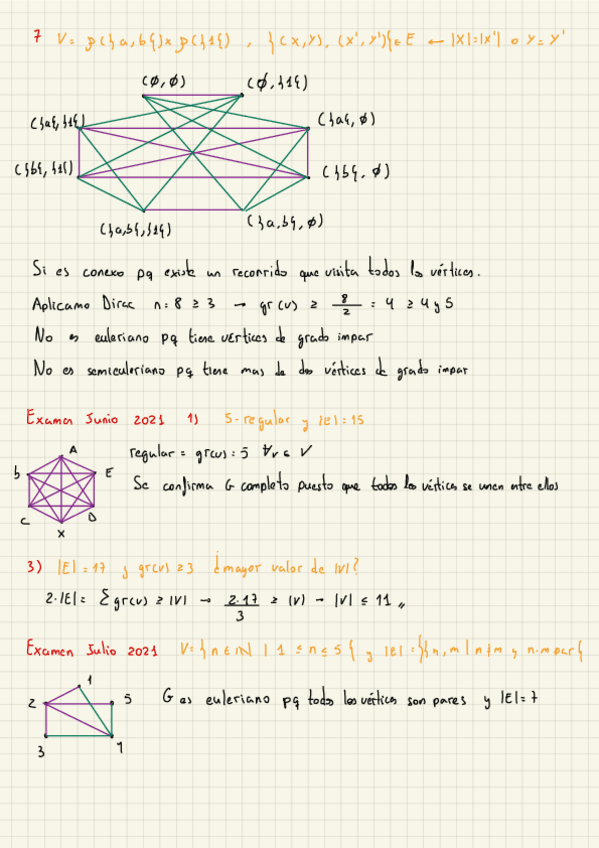 7 V = P({a,b}) x P({1}) , {(x,y), (x',y')} ∈ E ← |X|=|x'| o Y = Y'
(∅,∅) (∅,{1})
({a},{1}) ({a},∅)
({b},{1}) ({b},∅)
({a,b},{1}) ({a,b},∅)
Si es conexo pq existe un recorrido que visita todos los vértices.
Aplicamo Dirac n=8 ≥ 3 → gr(v) ≥ 8/2 = 4 ≥ 4 y 5
No es euleriano pq tiene vértices de grado impar
No es semieuleriano pq tiene mas de dos vértices de grado impar
Examen Junio 2021 1) 5-regular y |E|=15
A
b E
C D
x
regular = gr(v)=5 ∀v ∈ V
Se confirma G completo puesto que todos los vértices se unen entre ellos
3) |E|=17 y gr(v) ≥ 3 ¿mayor valor de |V|?
2·|E| = Σ gr(v) ≥ |V| → 2·17/3 ≥ |V| → |V| ≤ 11
Examen Julio 2021 V = {n ∈ N | 1 ≤ n ≤ 5} y |E| = {{n,m | n≠m y n·m par}
1
2 5
3 1
G es euleriano pq todo los vértices son pares y |E|=7